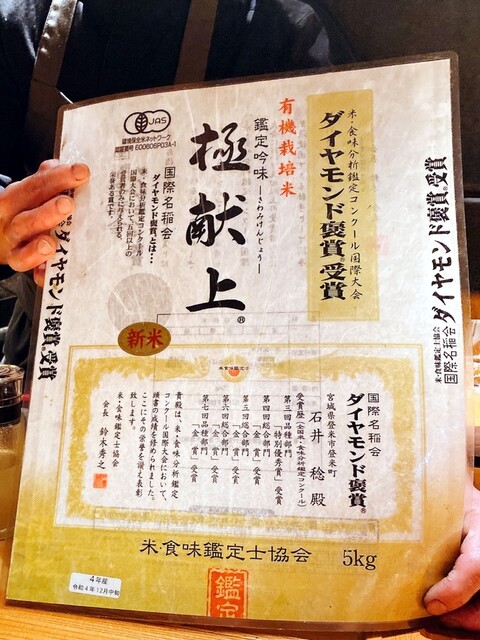 米・食味分析鑑定コンクール国際大会
ダイヤモンド褒賞®受賞
有機栽培米
鑑定吟味
―きわみけんじょう―
極献上®
JAS
環境保全米ネットワーク
認証番号 600606P03A-1
国際名稲会
ダイヤモンド褒賞®とは…
米・食味分析鑑定コンクール
国際大会において、五回以上の
受賞者のみに与えられる
栄誉ある賞です。
米・食味鑑定士協会
国際名稲会
ダイヤモンド褒賞®受賞
ダイヤモンド褒賞®受賞
新米
国際名稲会
ダイヤモンド褒賞®
宮城県登米市登米町
石井 稔 殿
受賞歴(全国米・食味分析鑑定コンクール)
第三回品種部門「特別優秀賞」受賞
第四回総合部門「金賞」受賞
第五回総合部門「金賞」受賞
第六回総合部門「金賞」受賞
第七回品種部門「金賞」受賞
貴殿は米・食味分析鑑定
コンクール国際大会において、
頭書の成績を修められました。
ここにその栄誉を讃え表彰
致します。
米・食味鑑定士協会
会長 鈴木秀之
米・食味鑑定士協会 5kg
鑑定
4年産
令和4年12月中旬